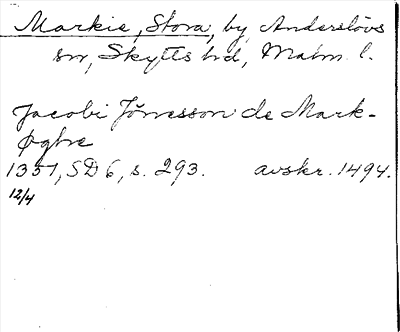 Markie, Stora, by Anderslövs
sn, Skytts hd, Malm. l.
Jacobi Jönesson de Mark-
øghre
1351, SD 6, s. 293. avskr. 1494.
12/4